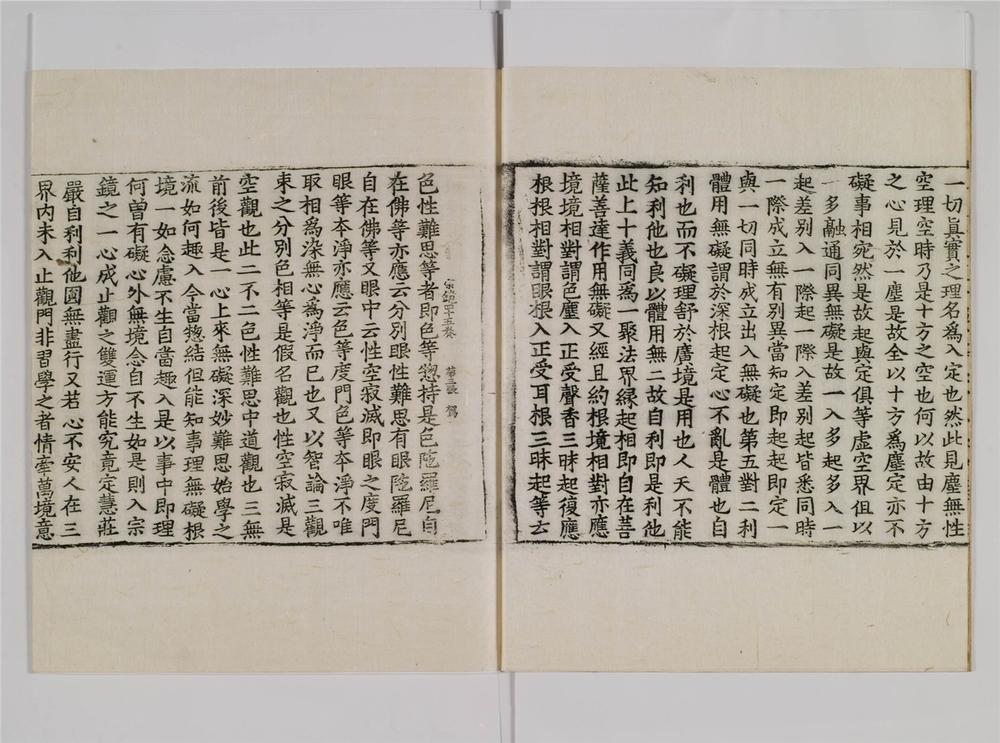 一切真實之理名爲入定也然此見塵無性
空理空時乃是十方之空也何以故由十方
之心見於一塵是故全以十方爲塵定亦不
礙事相宛然是故起與定俱等虛空界但以
一多融通同異無礙是故一入多起多入一
起差別入一際起一際入差別起皆悉同時
一際成立無有別異當知定即起起即定一
與一切同時成立出入無礙也第五對二利
體用無礙謂於深根起定心不亂是體也自
利也而不礙理舒於廣境是用也人天不能
知利他也良以體用無二故自利即是利他
此上十義同爲一聚法界緣起相即自在菩
薩善達作用無礙又經且約根境相對亦應
境境相對謂色塵入正受聲香三昧起復應
根根相對謂眼根入正受耳根三昧起等云
宗鏡第十五卷 第三張 駕
色性難思等者即色等惣持是色陁羅尼自
在佛等亦應云分別眼性難思有眼陁羅尼
自在佛等又眼中云性空寂滅即眼之度門
眼等夲淨亦應云色等度門色等夲淨不唯
取相爲染無心爲淨而已也又以智論三觀
束之分別色相等是假名觀也性空寂滅是
空觀也此二不二色性難思中道觀也三無
前後皆是一心上來無礙深妙難思始學之
流如何趣入今當惣結但能知事理無礙根
境一如念慮不生自當趣入是以事中即理
何曽有礙心外無境念自不生如是則入宗
鏡之一心成止觀之雙運方能究竟定慧莊
嚴自利利他圎無盡行又若心不安人在三
界內未入止觀門非習學之者情牽萬境意